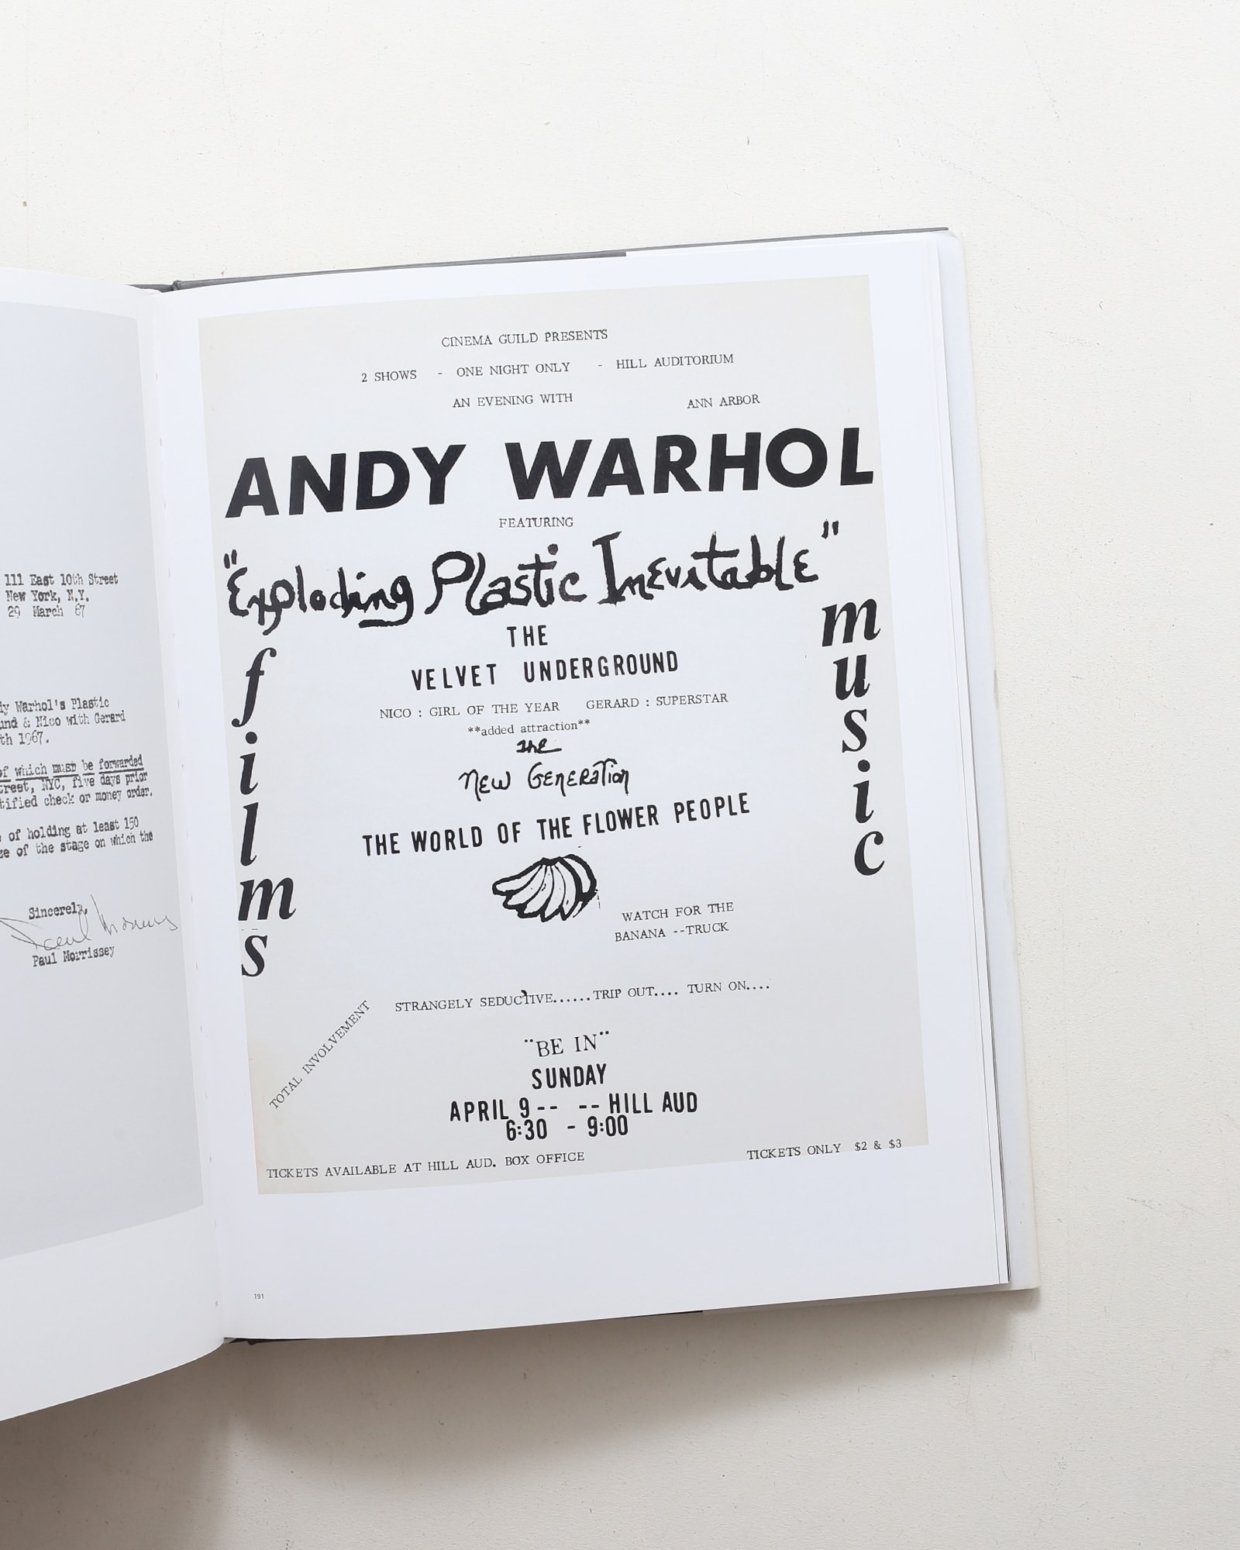 111 East 10th Street
New York, N.Y.
29 March 67
Warhol's Plastic
& Nico with Gerard
1967.
which must be forwarded
NYC, five days prior
check or money order.
of holding at least 150
of the stage on which the
Sincerely,
Paul Morrissey
CINEMA GUILD PRESENTS
2 SHOWS - ONE NIGHT ONLY - HILL AUDITORIUM
AN EVENING WITH ANN ARBOR
ANDY WARHOL
FEATURING
"Exploding Plastic Inevitable"
films
music
THE
VELVET UNDERGROUND
NICO : GIRL OF THE YEAR GERARD : SUPERSTAR
**added attraction**
the
New Generation
THE WORLD OF THE FLOWER PEOPLE
WATCH FOR THE
BANANA --TRUCK
STRANGELY SEDUCTIVE......TRIP OUT.... TURN ON....
TOTAL INVOLVEMENT
"BE IN"
SUNDAY
APRIL 9-- -- HILL AUD
6:30 - 9:00
TICKETS AVAILABLE AT HILL AUD. BOX OFFICE
TICKETS ONLY $2 & $3
191